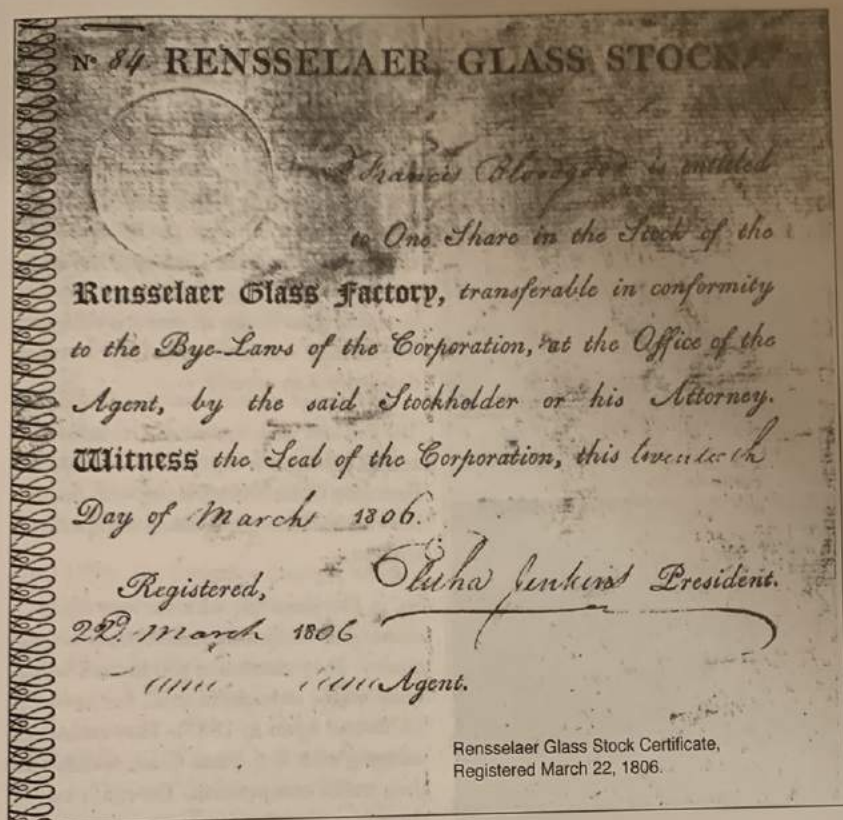 No 84 RENSSELAER GLASS STOCK
Francis Bloodgood is entitled
to One Share in the Stock of the
Rensselaer Glass Factory, transferable in conformity
to the Bye-Laws of the Corporation, at the Office of the
Agent, by the said Stockholder or his Attorney.
Witness the Seal of the Corporation, this twentieth
Day of March 1806.
Elisha Jenkins President.
Registered,
22D. March 1806
Agent.
Rensselaer Glass Stock Certificate,
Registered March 22, 1806.